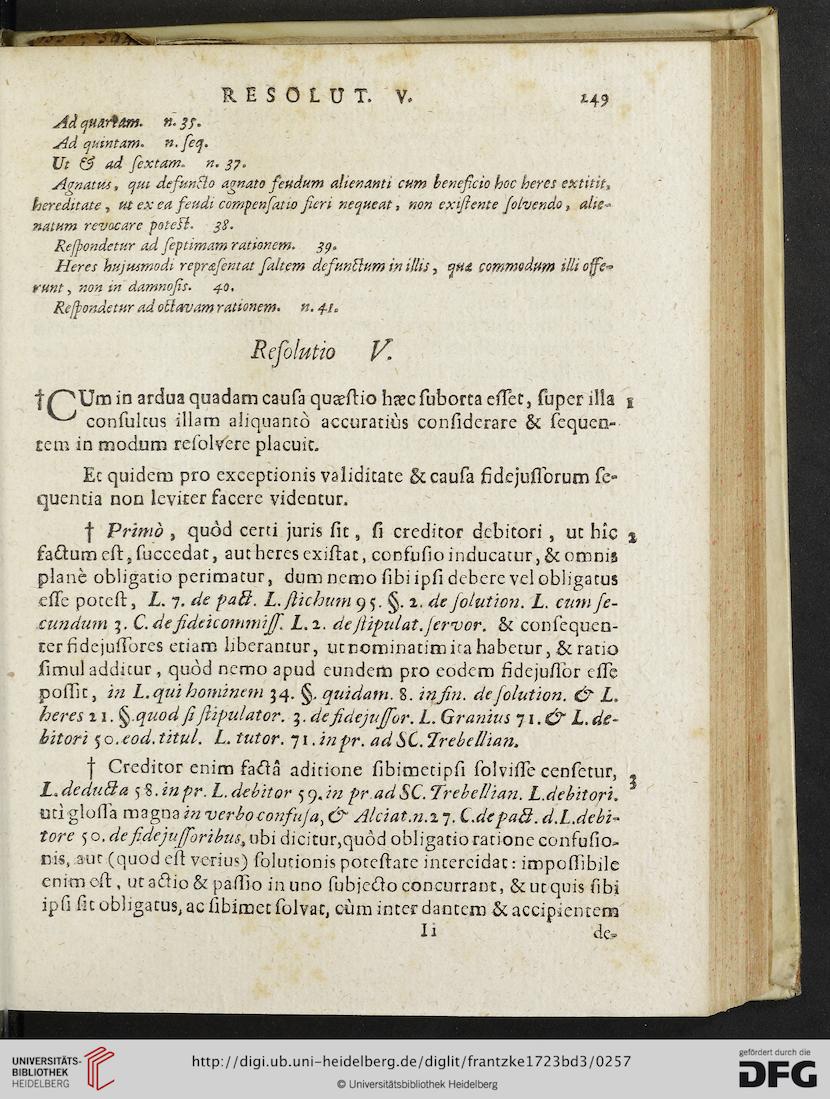 RESOLUT. V. 249
Ad quartam. n. 35.
Ad quintam. n. ſeq.
Ut & ad ſextam. n. 37.
Agnatus, qui defuncto agnato feudum alienanti cum beneficio hoc heres extitit,
hereditate, ut ex ea feudi compenſatio fieri nequeat, non exiſtente ſolvendo, alie-
natum revocare poteſt. 38.
Reſpondetur ad ſeptimam rationem. 39.
Heres hujusmodi repræſentat ſaltem defunctum in illis, quæ commodum illi offe-
runt, non in damnoſis. 40.
Reſpondetur ad octavam rationem. n. 41.
Reſolutio V.
†CUm in ardua quadam cauſa quæſtio hæc ſuborta eſſet, ſuper illa 1
conſultus illam aliquantò accuratiùs conſiderare & ſequen-
tem in modum reſolvere placuit.
Et quidem pro exceptionis validitate & cauſa fidejuſſorum ſe-
quentia non leviter facere videntur.
† Primò, quòd certi juris ſit, ſi creditor debitori, ut hîc 2
factum eſt, ſuccedat, aut heres exiſtat, confuſio inducatur, & omnis
planè obligatio perimatur, dum nemo ſibi ipſi debere vel obligatus
eſſe poteſt, L. 7. de pact. L. ſtichum 95. §. 2. de ſolution. L. cum ſe-
cundum 3. C. de fideicommiſſ. L. 2. de ſtipulat. ſervor. & conſequen-
ter fidejuſſores etiam liberantur, ut nominatim ita habetur, & ratio
ſimul additur, quòd nemo apud eundem pro eodem fidejuſſor eſſe
poſſit, in L. qui hominem 34. §. quidam. 8. in fin. de ſolution. & L.
heres 21. §. quod ſi ſtipulator. 3. de fidejuſſor. L. Granius 71. & L. de-
bitori 50. eod. titul. L. tutor. 71. in pr. ad SC. Trebellian.
† Creditor enim factâ aditione ſibimetipſi ſolviſſe cenſetur, 3
L. deducta 58. in pr. L. debitor 59. in pr. ad SC. Trebellian. L. debitori.
utì gloſſa magna in verbo confuſa, & Alciat. n. 27. C. de pact. d. L. debi-
tore 50. de fidejuſſoribus, ubi dicitur, quòd obligatio ratione confuſio-
nis, aut (quod eſt verius) ſolutionis poteſtate intercidat: impoſſibile
enim eſt, ut actio & paſſio in uno ſubjecto concurrant, & ut quis ſibi
ipſi ſit obligatus, ac ſibimet ſolvat, cùm inter dantem & accipientem
Ii de-
UNIVERSITÄTS-
BIBLIOTHEK
HEIDELBERG
http://digi.ub.uni-heidelberg.de/diglit/frantzke1723bd3/0257
© Universitätsbibliothek Heidelberg
gefördert durch die
DFG